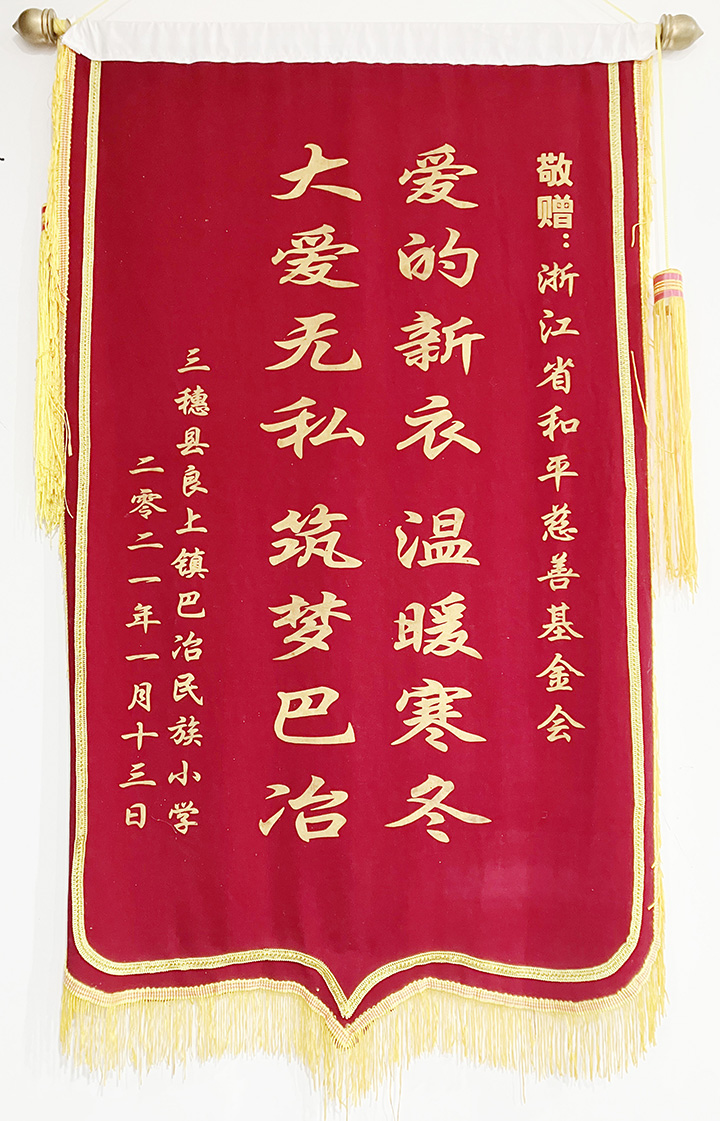 敬赠：浙江省和平慈善基金会
爱的新衣 温暖寒冬
大爱无私 筑梦巴冶
三穗县良上镇巴冶民族小学
二零二一年一月十三日